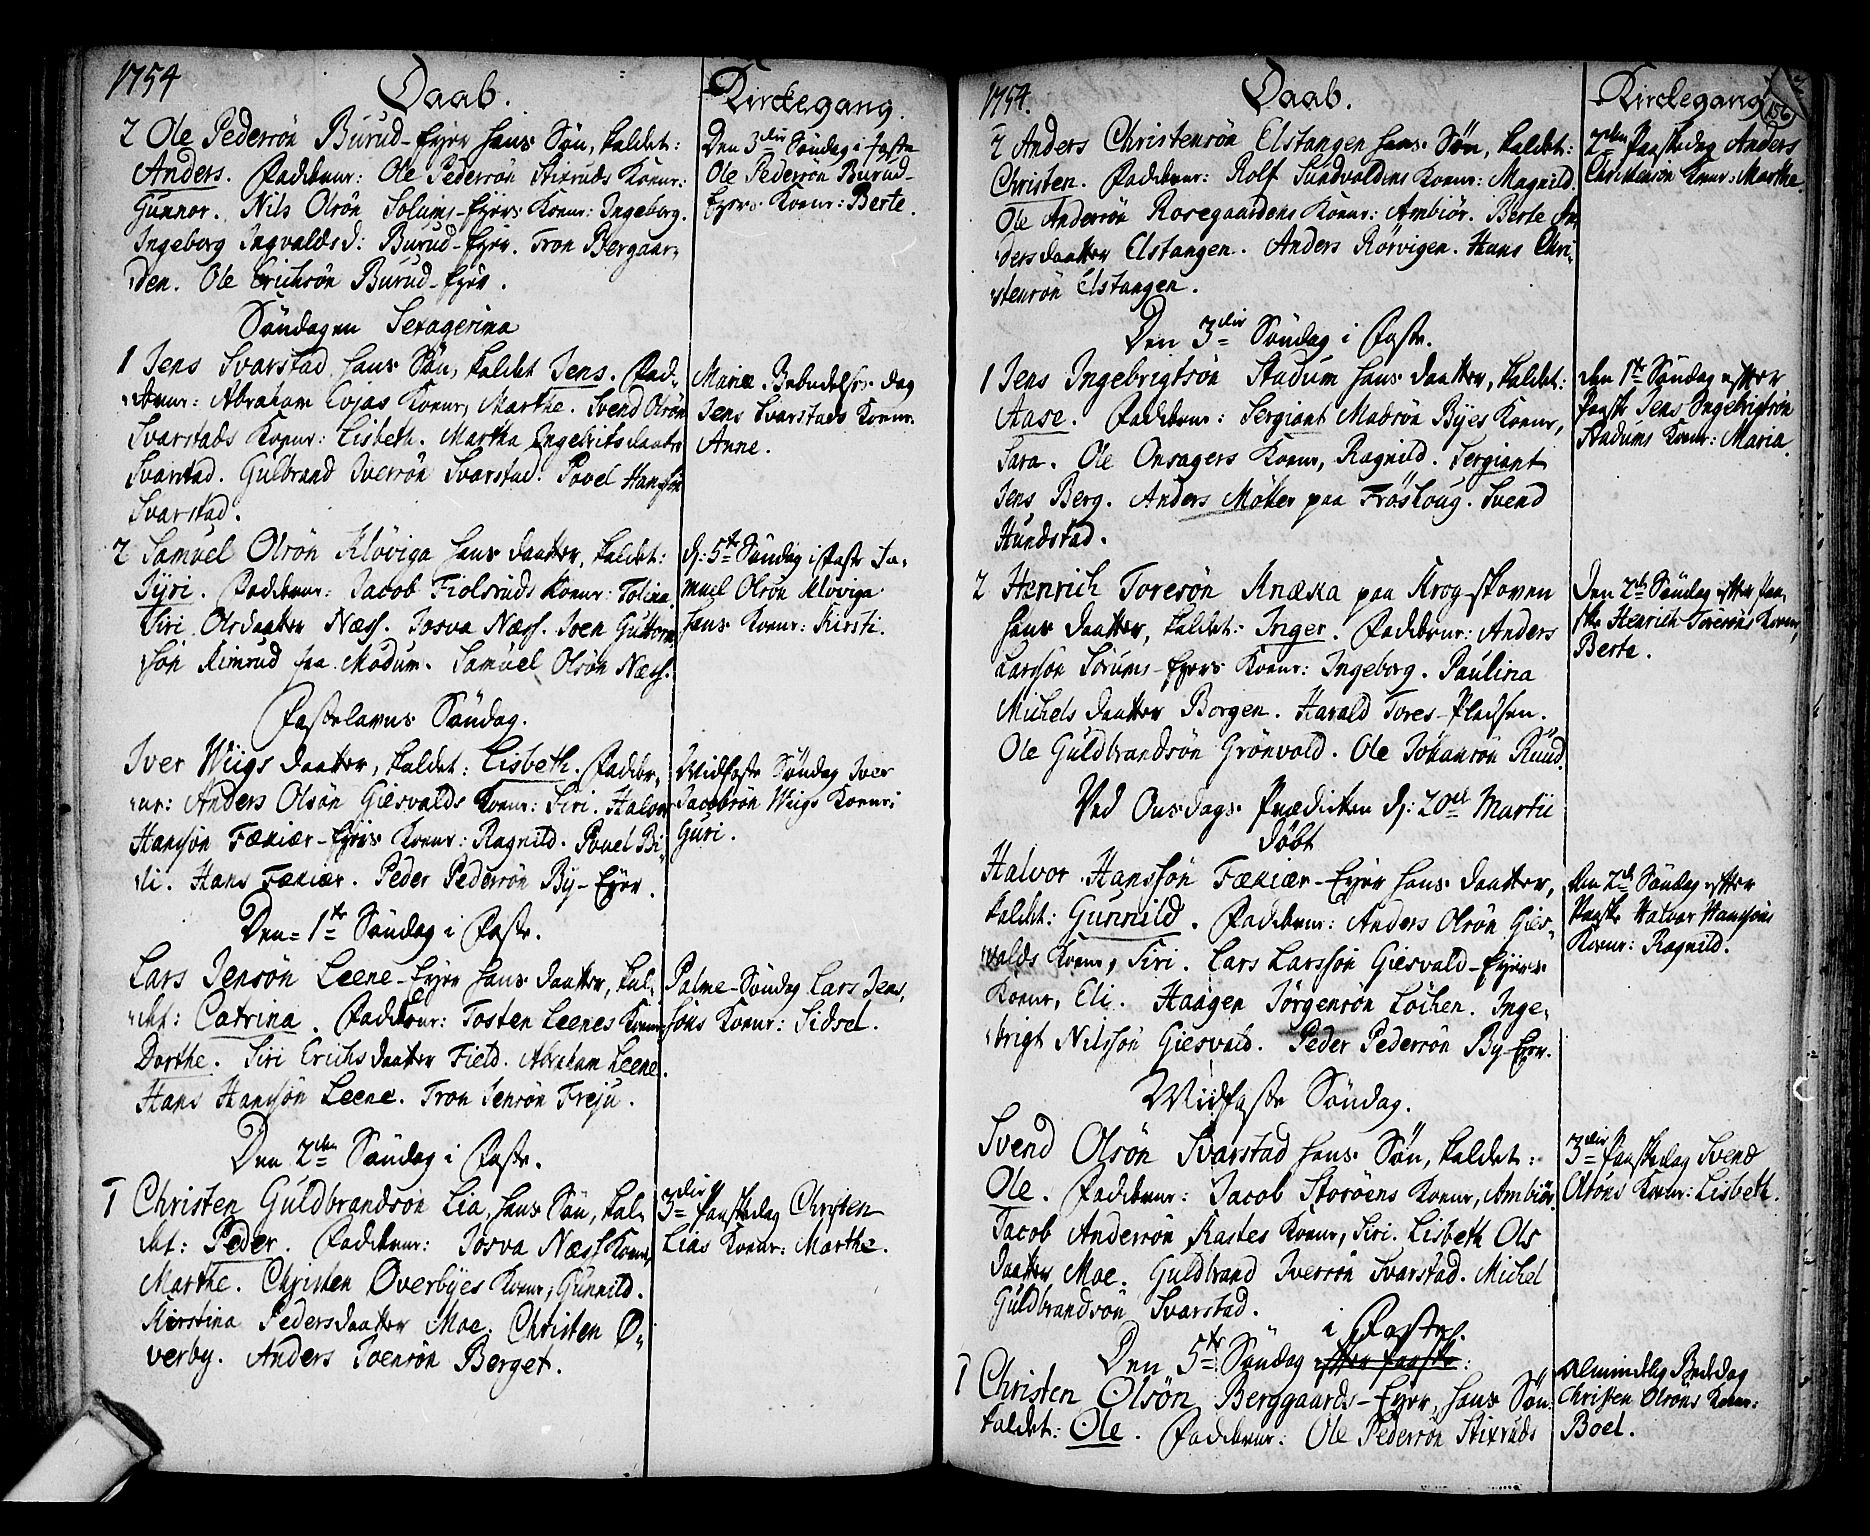 1754
Daab.
Kirckegang.
2 Ole Pederssön Burud-Eyer hans Sön, kaldet:
Anders. Fadderne: Ole Pederssön Stixruds Kone:
Gunnor. Nils Olsön Solums-Eyers Kone: Ingeborg.
Ingeborg Ingvaldsd: Burud-Eyer. Tron Bergaar-
den. Ole Erichsön Burud-Eyer.
Den 3die Söndag i Faste
Ole Pedersön Burud-
Eyers Kone: Berte.
Söndagen Sexagesima
1 Jens Svarstad hans Sön, kaldet Jens. Fad-
derne: Abraham Lojas Kone, Marthe. Svend Olsön
Svarstads Kone: Lisbeth. Martha Ingebritsdaatter
Svarstad. Gulbrand Iversön Svarstad. Povel Hansön
Svarstad.
Mariæ Bebudelses dag
Jens Svarstads Kone:
Anne.
2 Samuel Olsön Klöviga hans daatter, kaldet:
Siri. Fadderne: Jacob Fiolsruds Kone: Tolina.
Siri Olsdaatter Næss. Josva Næss. Joen Guttorm-
sön Rimrud paa Modum. Samuel Olsön Næss.
d: 5te Söndag i Faste Sa-
muel Olsön Klöviga
hans Kone: Kirsti.
Fastelavns Söndag.
Iver Wiigs daatter, kaldet: Lisbeth. Fadder-
ne: Anders Olsön Giesvalds Kone: Siri. Halvor
Hansön Fækiær-Eyers Kone: Ragnild. Povel Bi-
li. Hans Fækiær. Peder Pedersön By-Eyer.
Midfaste Söndag Iver
Jacobsön Wiigs Kone:
Guri.
Den 1te Söndag i Faste.
Lars Jensön Leene-Eyer hans daatter, kal-
det: Catrina. Fadderne: Tosten Leenes Kone
Dorthe. Siri Erichsdaatter Field. Abraham Leene.
Hans Hansön Leene. Tron Jensön Freju.
Palme-Söndag Lars Jens-
söns Kone: Sidsel.
Den 2den Söndag i Faste.
1 Christen Guldbrandsön Lia, hans Sön, kal-
det: Peder. Fadderne: Josva Næss Kone,
Marthe. Christen Överbyes Kone, Gunnild.
Kirstina Pedersdaatter Moe. Christen Ö-
verby. Anders Svensön Berget.
3die Paaskedag Christen
Lias Kone: Marthe.
1754.
Daab.
Kirckegang
156
2 Anders Christensön Elstangen hans Sön, kaldet:
Christen. Fadderne: Rolf Sundvoldens Kone: Magnild.
Ole Andersön Rosegaardens Kone: Ambiör. Berte An-
dersdaatter Elstangen. Anders Rörvigen. Hans Chri-
stensön Elstangen.
2den Paaskedag Anders
Christensön Kone: Marthe
Den 3die Söndag i Faste.
1 Jens Ingebrigtsön Stadum hans daatter, kaldet:
Aase. Fadderne: Sergiant Madsön Byes Kone,
Sara. Ole Onsagers Kone, Ragnild. Sergiant
Jens Berg. Anders Möller paa Frösloug. Svend
Hundstad.
den 1te Söndag efter
Paaske Jens Ingebrigtsön
Stadums Kone: Maria.
2 Henrich Toresön Knæka paa Krog-skoven
hans daatter, kaldet: Inger. Fadderne: Anders
Larssön Sörums-Eyers Kone: Ingeborg. Paulina
Michelsdaatter Borgen. Harald Tores-Pladsen.
Ole Guldbrandsön Grönvold. Ole Johansön Ruud.
Den 2den Söndag efter Paa-
ske Henrich Toresöns Kone,
Berte.
Ved Onsdags Prædicken d: 20de Martii
döbt
Halvor Hanssön Fækiær-Eyer hans daatter,
kaldet: Gunnild. Fadderne: Anders Olsön Gies-
valds Kone, Siri. Lars Larssön Giesvald-Eyers
Kone, Eli. Haagen Jörgensön Löchen. Inge-
brigt Nilssön Giesvald. Peder Pedersön By-Eyer.
den 2den Söndag efter
Paaske Halvor Hansöns
Kone: Ragnild.
Midfaste Söndag.
Svend Olsön Svarstad hans Sön, kaldet:
Ole. Fadderne: Jacob Storöens Kone, Ambiör.
Jacob Andersön Rastes Kone, Siri. Lisbeth Ols
daatter Moe. Guldbrand Iversön Svarstad. Michel
Guldbrandsön Svarstad.
3die Paaskedag Svend
Olsöns Kone: Lisbeth.
i Faste.
Den 5te Söndag efter Paaske:
1 Christen Olsön Berggaards-Eyer, hans Sön
kaldet: Ole. Fadderne: Ole Pedersön Stixruds
Almindelig Bededag
Christen Olsöns Kone:
Boel.